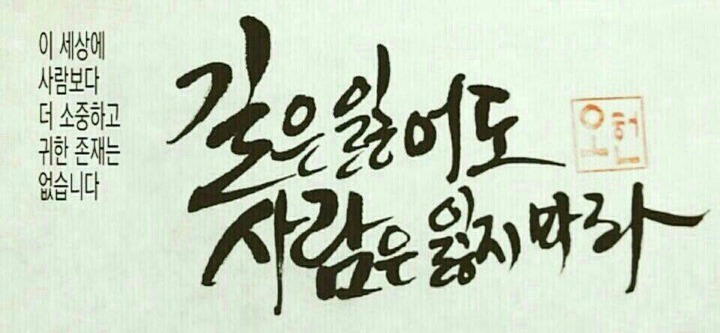 이 세상에
사람보다
더 소중하고
귀한 존재는
없습니다
길은 잃어도
사람은 잃지 마라
오헌